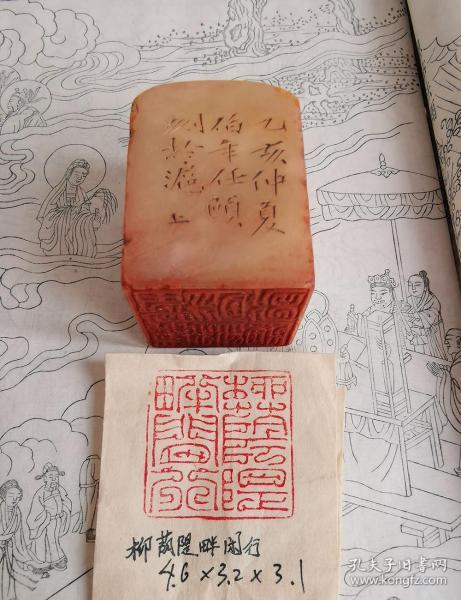 乙亥仲夏
伯年任頤
刻於滬上
柳蔭隄畔闲行
柳蔭隄畔閒行
4.6×3.2×3.1
孔夫子旧书网
www.kongfz.com